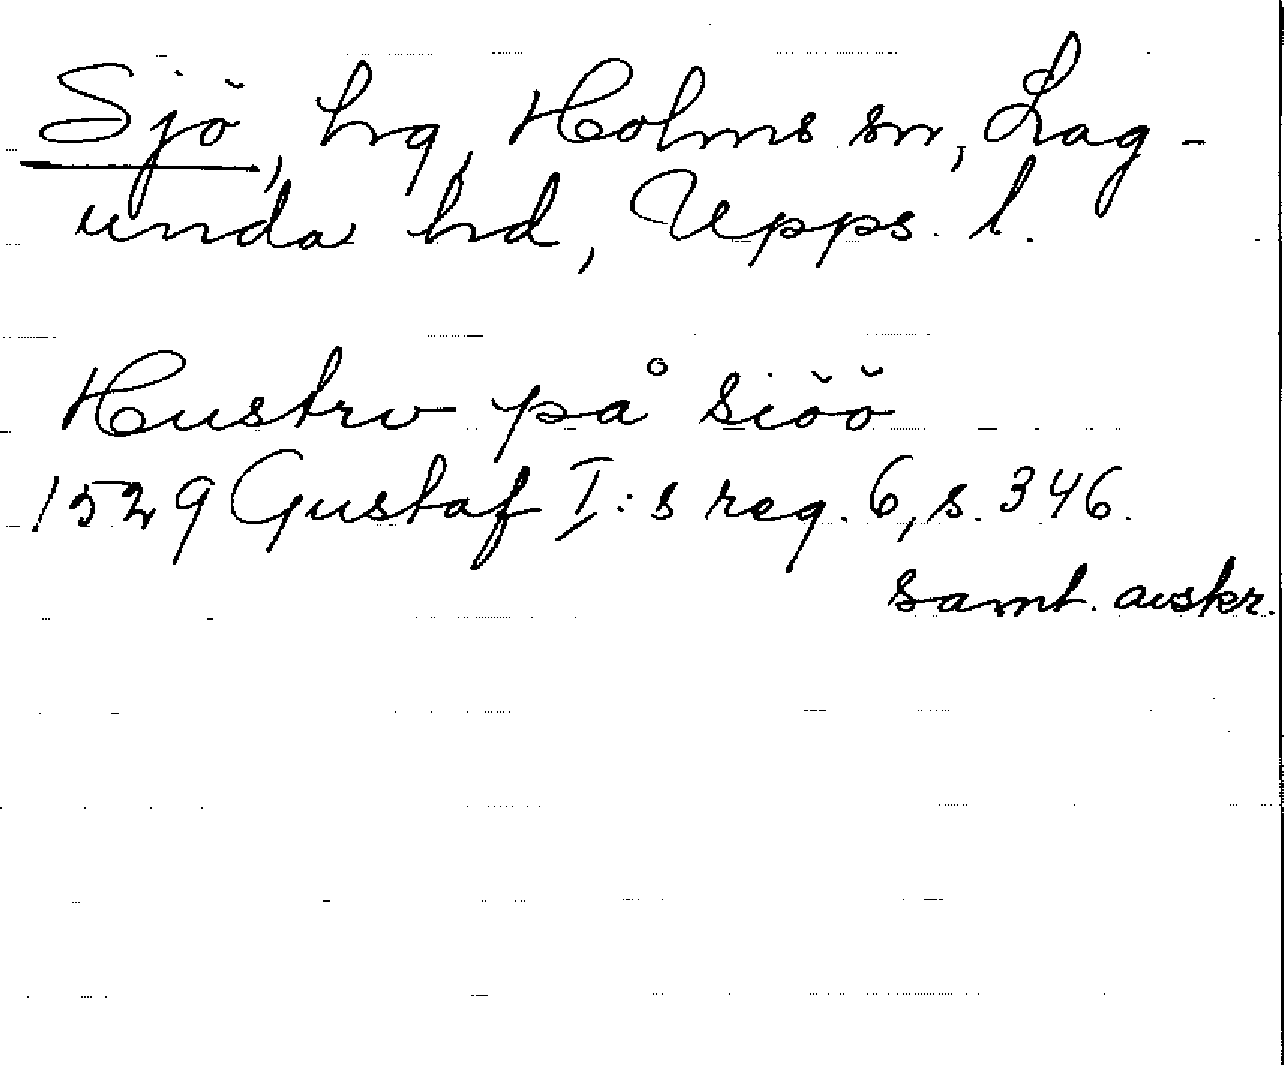 Sjö, hg, Holms sn, Lag-
unda hd, Upps. l.
Hustrv på siöö
1529 Gustaf I:s reg. 6, s. 346.
samt. avskr.